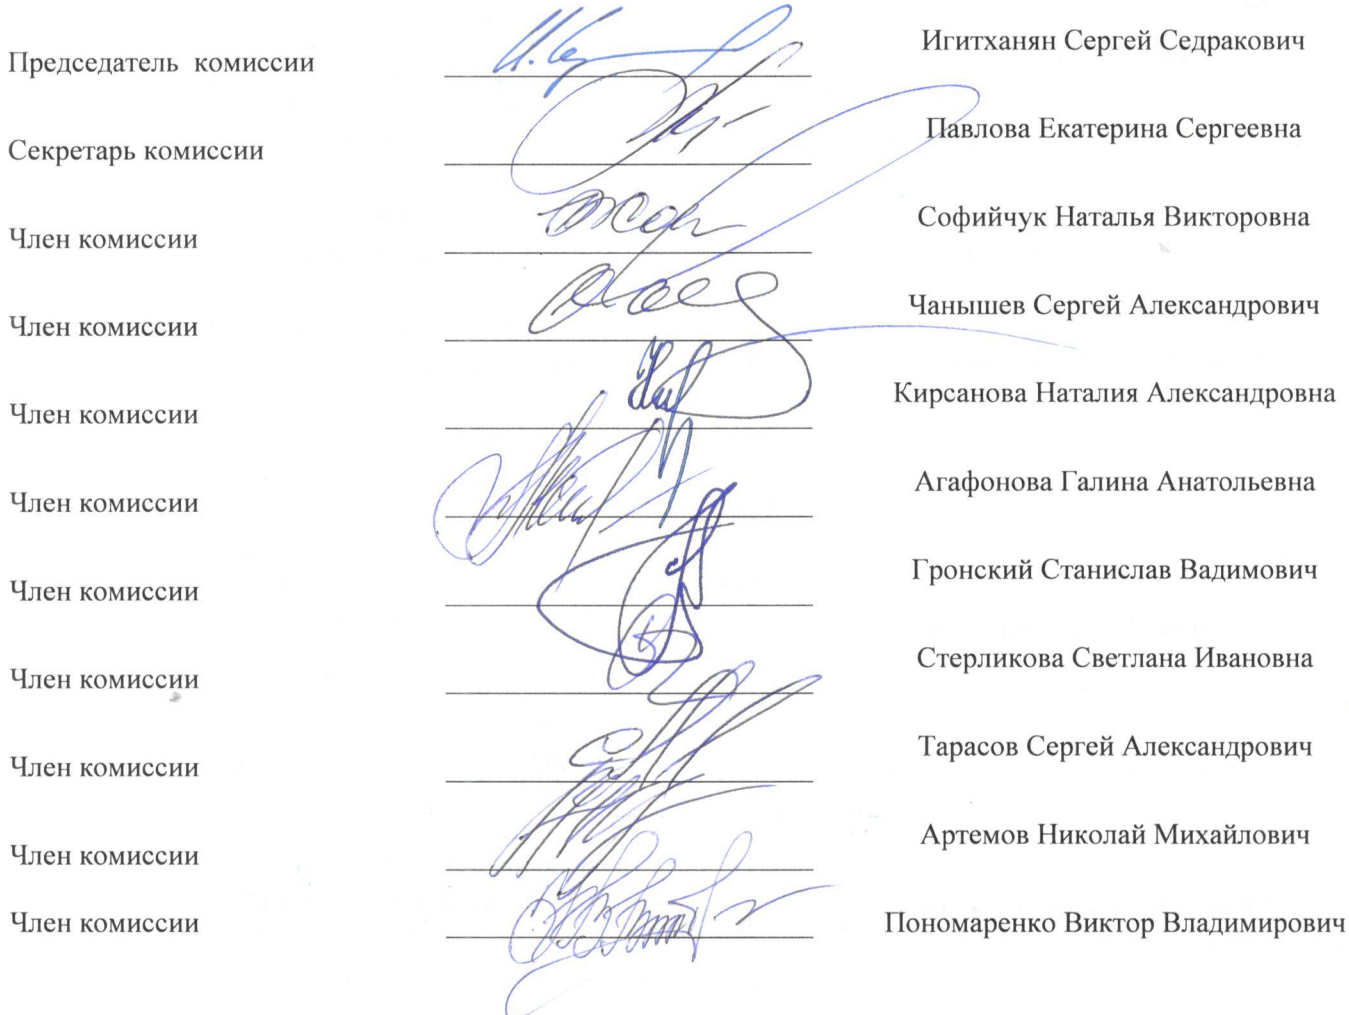 Председатель комиссии Игитханян Сергей Седракович
Секретарь комиссии Павлова Екатерина Сергеевна
Член комиссии Софийчук Наталья Викторовна
Член комиссии Чанышев Сергей Александрович
Член комиссии Кирсанова Наталия Александровна
Член комиссии Агафонова Галина Анатольевна
Член комиссии Гронский Станислав Вадимович
Член комиссии Стерликова Светлана Ивановна
Член комиссии Тарасов Сергей Александрович
Член комиссии Артемов Николай Михайлович
Член комиссии Пономаренко Виктор Владимирович